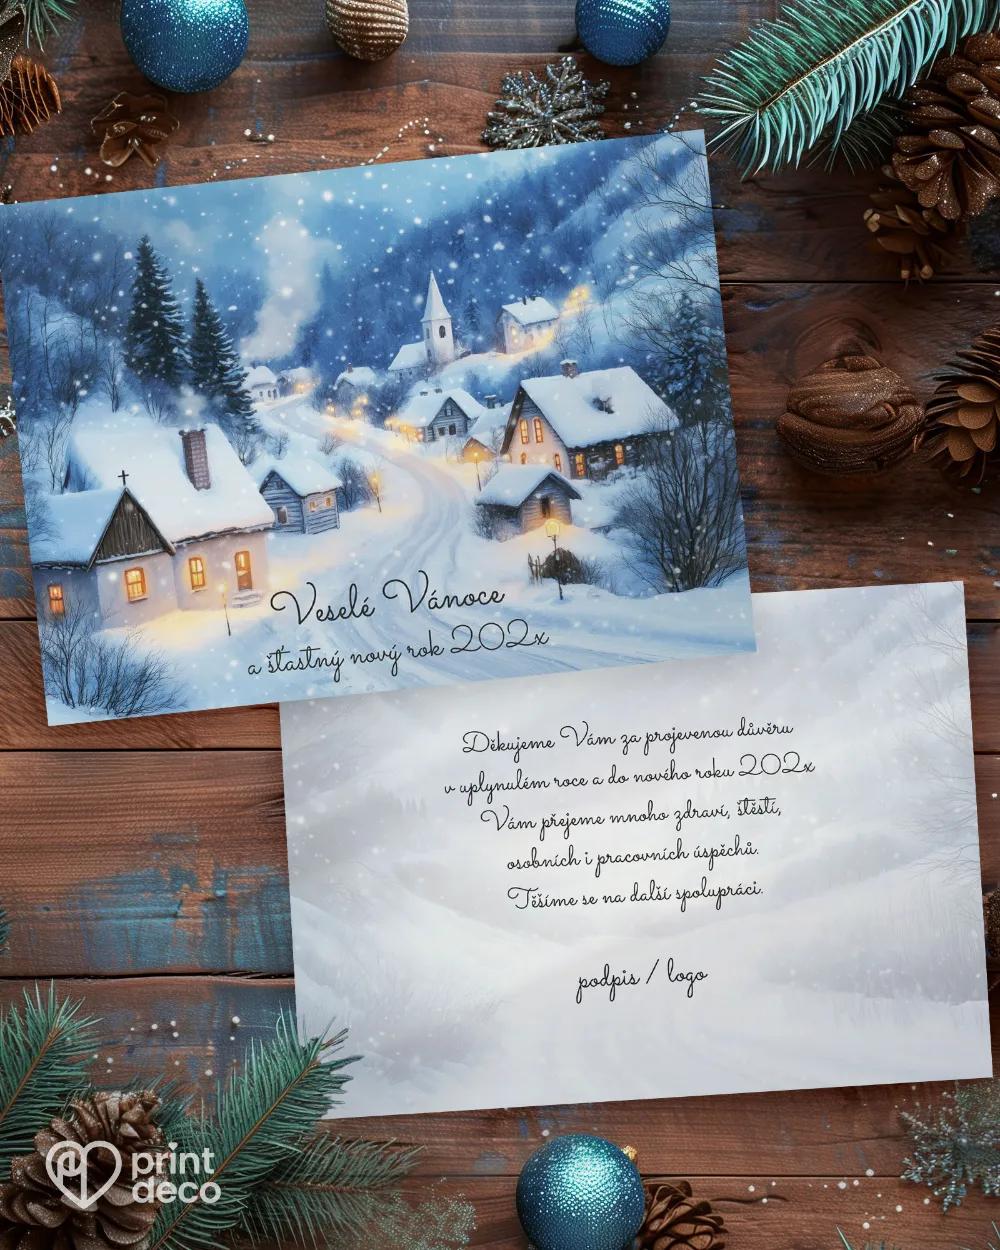 Veselé Vánoce
a šťastný nový rok 202x
Děkujeme Vám za projevenou důvěru
v uplynulém roce a do nového roku 202x
Vám přejeme mnoho zdraví, štěstí,
osobních i pracovních úspěchů.
Těšíme se na další spolupráci.
podpis / logo
print
deco